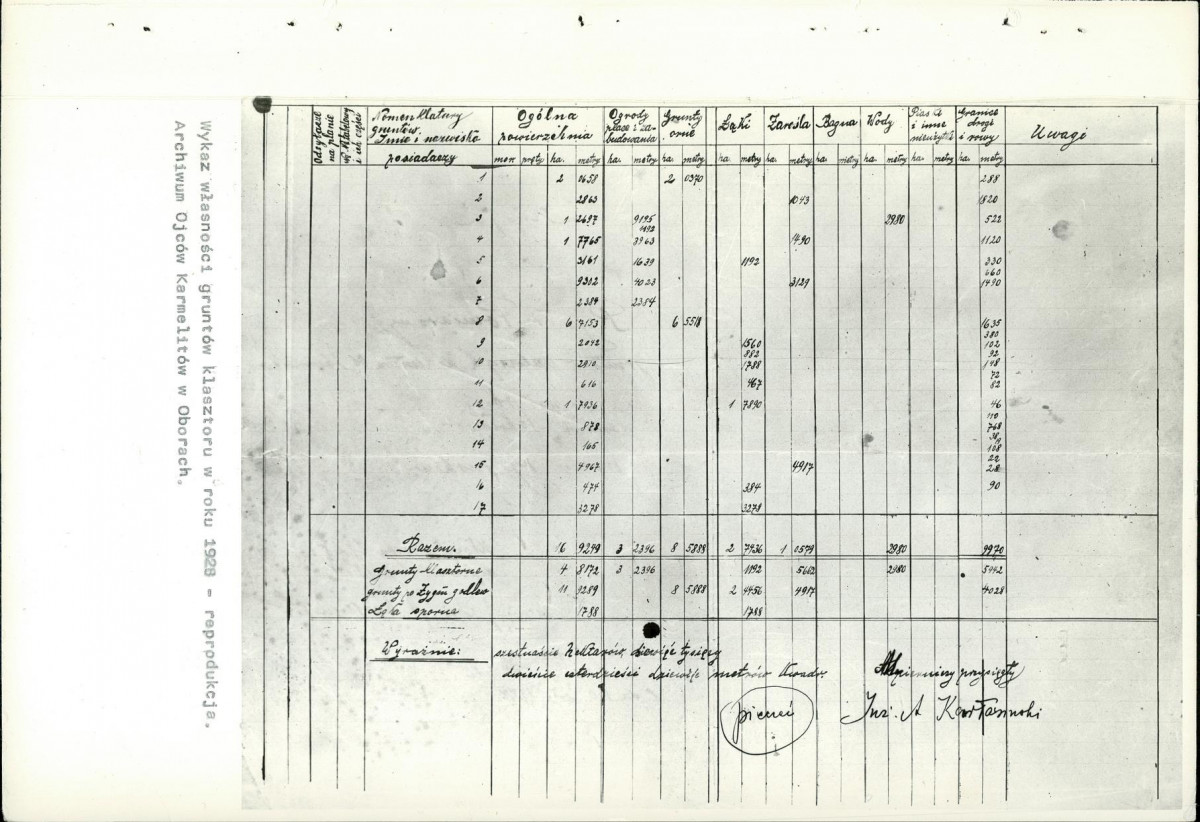 Wykaz własności gruntów klasztoru w roku 1928 - reprodukcja.
Archiwum Ojców Karmelitów w Oborach.
Nomenklatury gruntów. Imię i nazwisko posiadaczy
Ogólna powierzchnia
Ogrody place i zabudowania
Grunty orne
Łąki
Zarośla
Bagna
Wody
Piaski i inne nieużytki
Granice drogi i rowy
Uwagi
mor. pręty ha. metry ha. metry ha. metry ha. metry ha. metry ha. metry ha. metry ha. metry ha. metry
1 2 0658 2 0370 288
2 2863 1043 1820
3 1 2697 9195 2980 522
1192
4 1 7765 3963 1490 1120
5 3161 1639 1192 330
660
6 9302 4023 3129 1490
7 2384 2384
8 6 7153 6 5518 1635
380
9 2042 1560 102
882 92
10 2910 1788 148
72
11 616 467 82
12 1 7936 1 7890 46
110
13 878 768
38
14 165 108
22
15 4967 4917 28
16 474 384 90
17 3278 3278
Razem. 16 9249 3 2396 8 5888 2 7936 1 0579 2980 9970
Grunty klasztorne 4 8172 3 2396 1192 5662 2980 5942
grunty po 11 9289 8 5888 2 4956 4917 4028
Łąka sporna 1788 1788
Wyraźnie: szesnaście hektarów dziewięć tysięcy
dwieście czterdzieści dziewięć metrów kwadr.
pieczęć
Mierniczy przysięgły
Inż. A